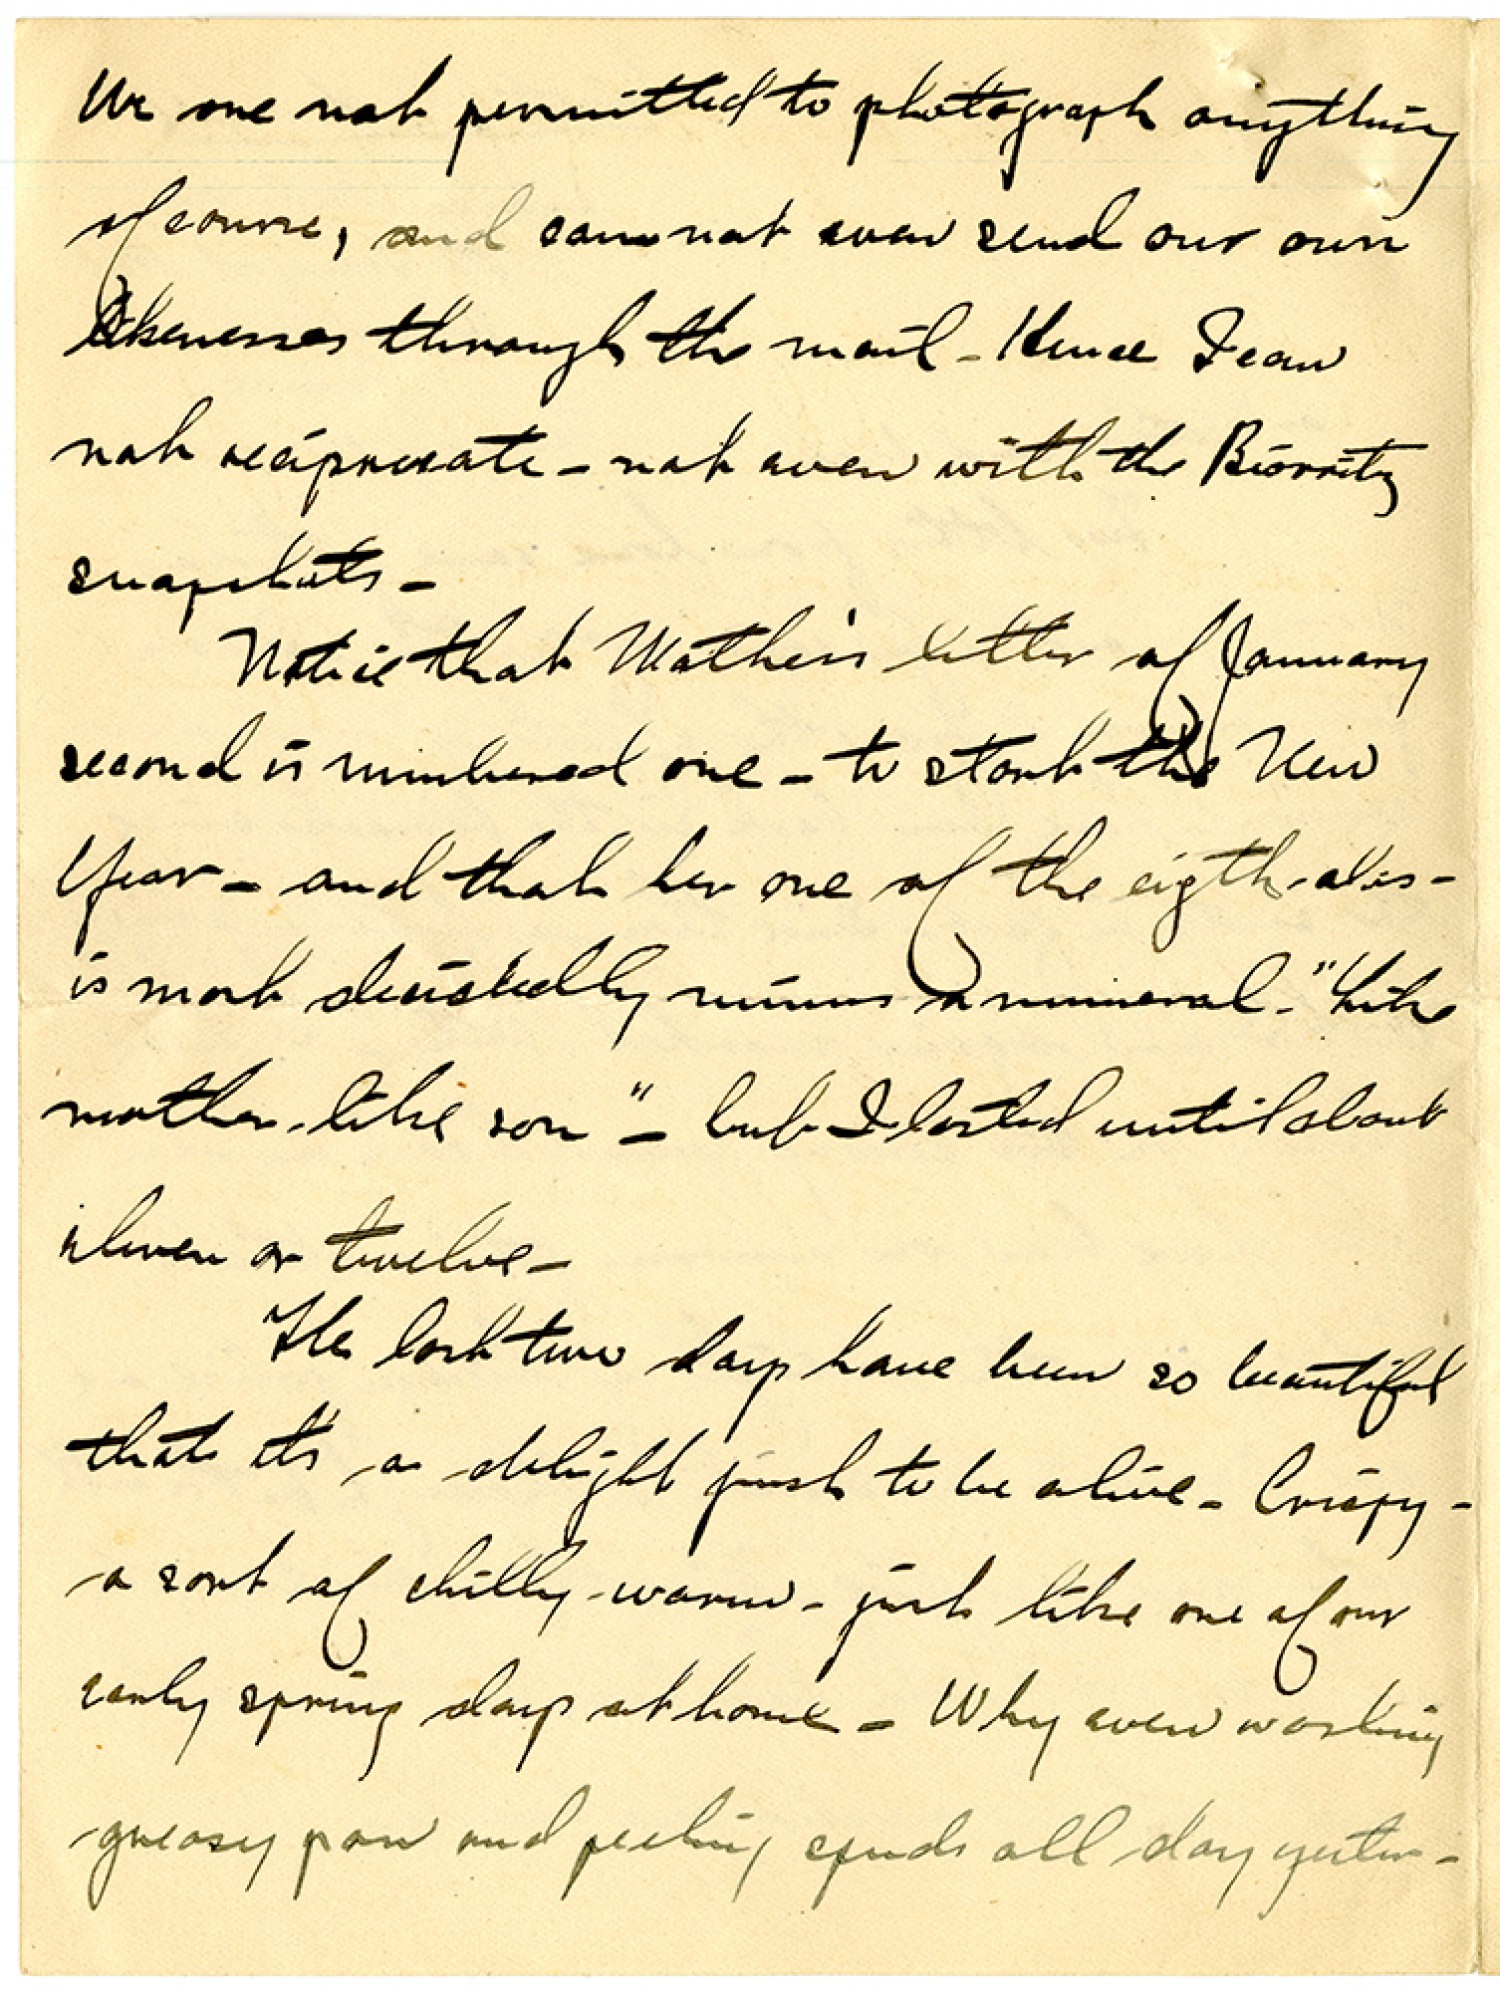 We are not permitted to photograph anything
of course, and can not even send our own
likenesses through the mail - Hence I can
not reciprocate - not even with the Biarritz
snapshots -
Notice that Mother's letter of January
second is numbered one - to start the New
Year - and that her one of the eigth - alas -
is most decidedly minus a numeral - "Like
mother - like son" - but I lasted until about
eleven or twelve -
The last two days have been so beautiful
that it's a delight just to be alive - Crispy -
a sort of chilly-warm - just like one of our
early spring days at home - Why even washing
greasy pans and peeling spuds all day yester-